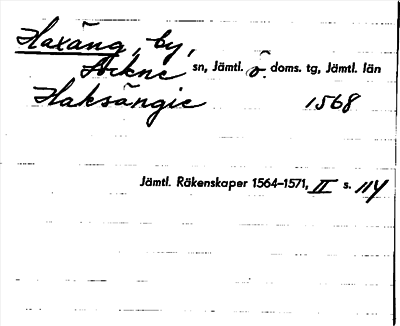 Haxäng, by,
Lockne sn, Jämtl. ö doms. tg, Jämtl. län
Haksängie 1568
Jämtl. Räkenskaper 1564–1571, II s. 114